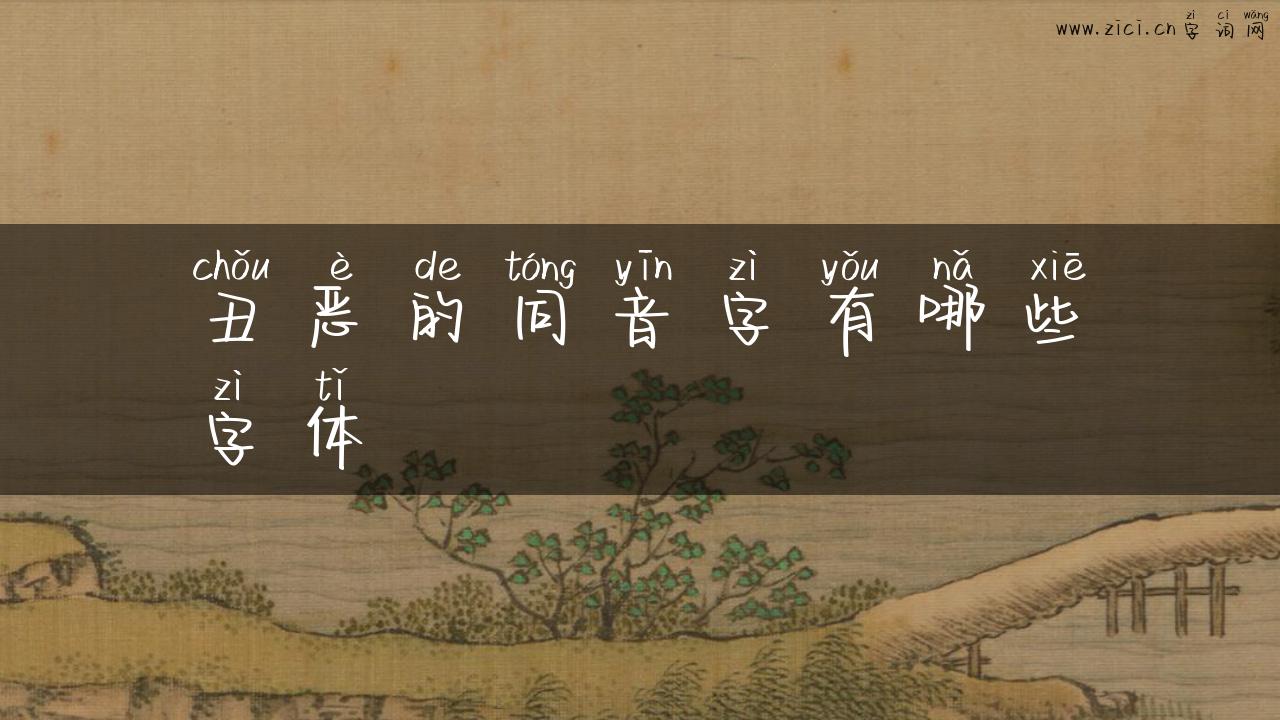 zì cí wǎng
www.zici.cn字词网
chǒu è de tóng yīn zì yǒu nǎ xiē
丑恶的同音字有哪些
zì tǐ
字体